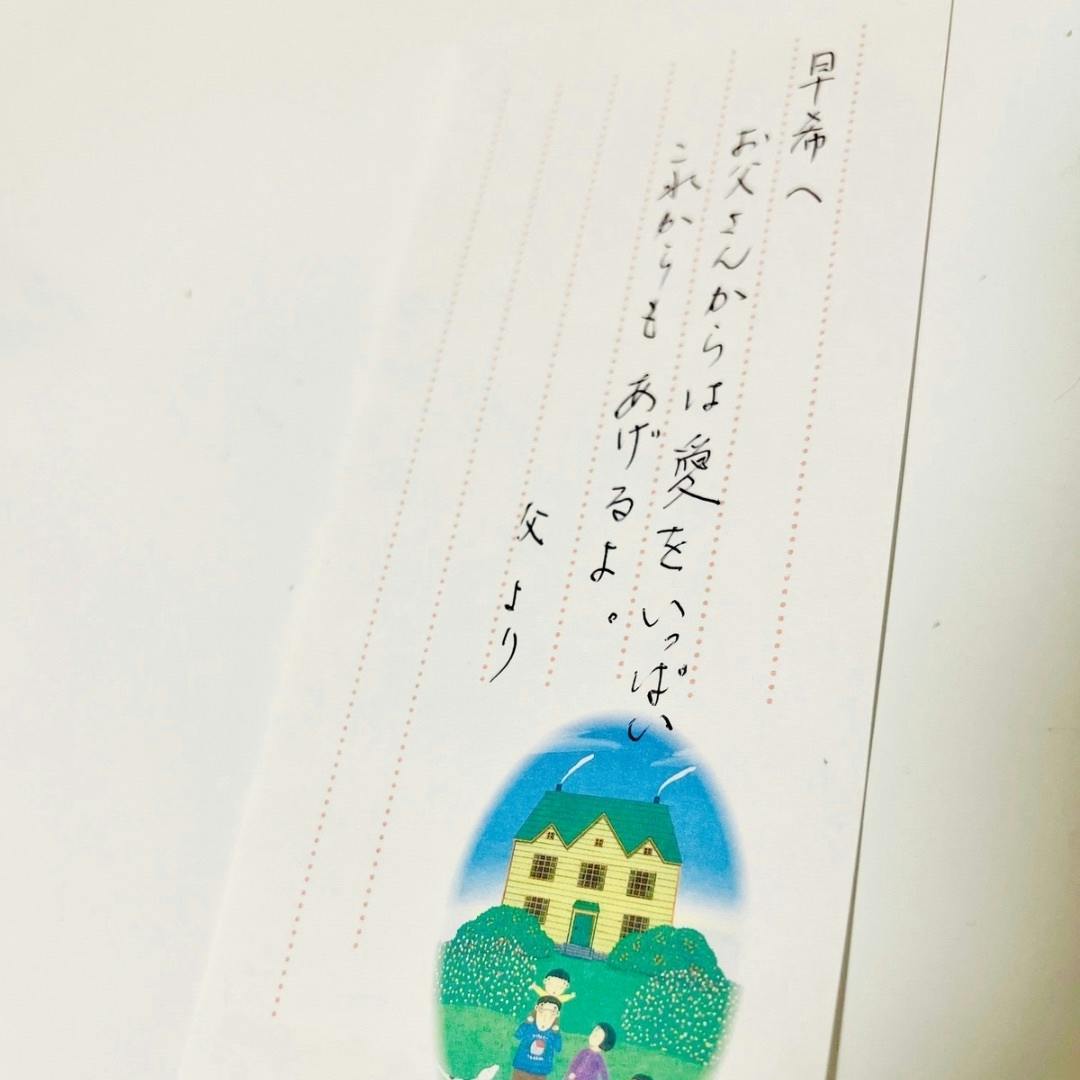 早希へ
お父さんからは愛をいっぱい
これからもあげるよ。
父より